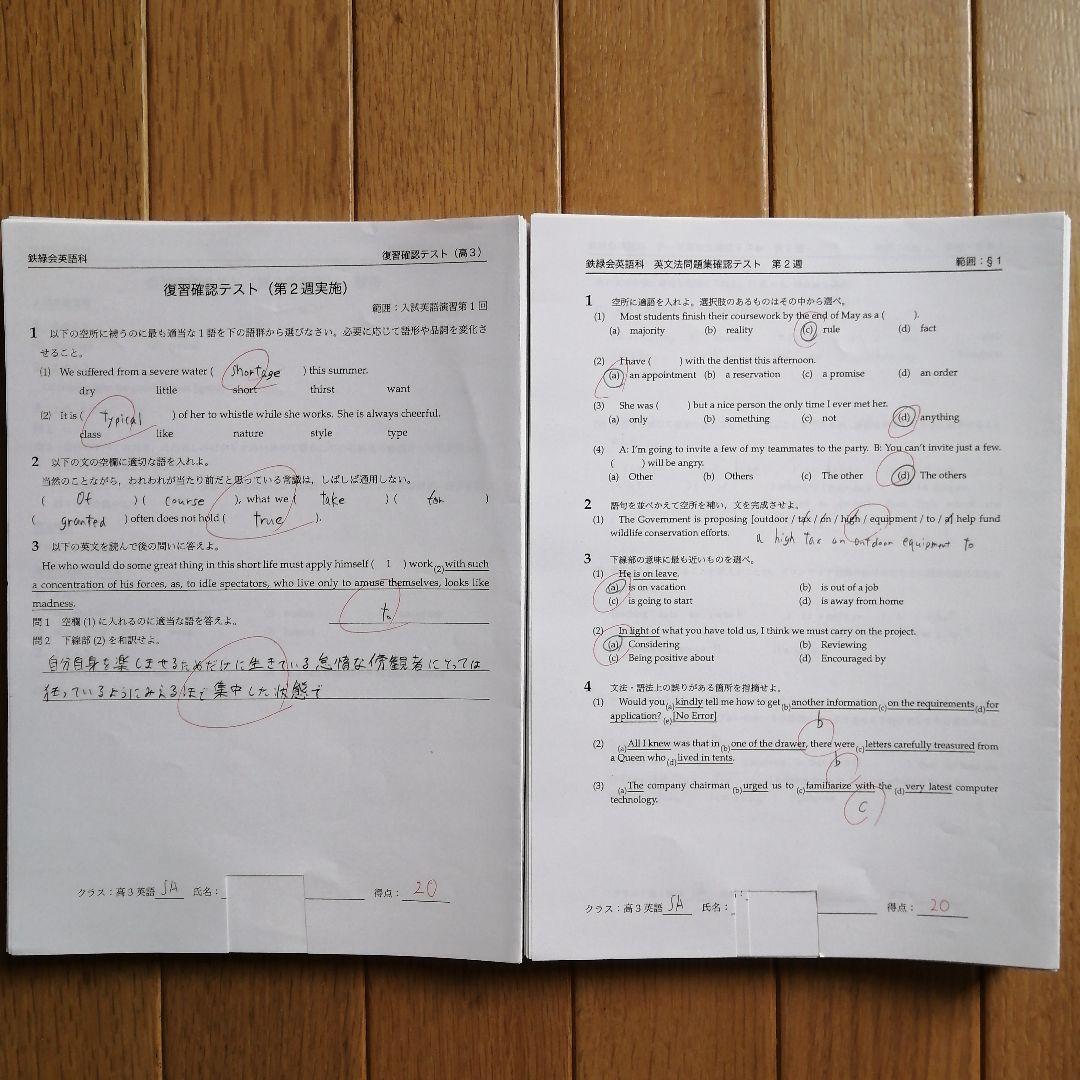 鉄緑会英語科 復習確認テスト（高３）
復習確認テスト（第２週実施）
範囲：入試英語演習第１回
1 以下の空所に補うのに最も適当な１語を下の語群から選びなさい。必要に応じて語形や品詞を変化さ
せること。
(1) We suffered from a severe water ( shortage ) this summer.
dry little short thirst want
(2) It is ( typical ) of her to whistle while she works. She is always cheerful.
class like nature style type
2 以下の文の空欄に適切な語を入れよ。
当然のことながら，われわれが当たり前だと思っている常識は，しばしば通用しない。
( Of ) ( course ), what we ( take ) ( for )
( granted ) often does not hold ( true ).
3 以下の英文を読んで後の問いに答えよ。
He who would do some great thing in this short life must apply himself ( 1 ) work (2)with such
a concentration of his forces, as, to idle spectators, who live only to amuse themselves, looks like
madness.
問１ 空欄(1)に入れるのに適当な語を答えよ。 to
問２ 下線部(2)を和訳せよ。
自分自身を楽しませるためだけに生きている怠惰な傍観者にとっては
狂っているようにみえるほど集中した状態で
クラス：高３英語 SA 氏名： 得点： 20
鉄緑会英語科 英文法問題集確認テスト 第２週 範囲：§1
1 空所に適語を入れよ。選択肢のあるものはその中から選べ。
(1) Most students finish their coursework by the end of May as a ( ).
(a) majority (b) reality (c) rule (d) fact
(2) I have ( ) with the dentist this afternoon.
(a) an appointment (b) a reservation (c) a promise (d) an order
(3) She was ( ) but a nice person the only time I ever met her.
(a) only (b) something (c) not (d) anything
(4) A: I'm going to invite a few of my teammates to the party. B: You can't invite just a few.
( ) will be angry.
(a) Other (b) Others (c) The other (d) The others
2 語句を並べかえて空所を補い，文を完成させよ。
(1) The Government is proposing [outdoor / tax / on / high / equipment / to / a] help fund
wildlife conservation efforts.
a high tax on outdoor equipment to
3 下線部の意味に最も近いものを選べ。
(1) He is on leave.
(a) is on vacation (b) is out of a job
(c) is going to start (d) is away from home
(2) In light of what you have told us, I think we must carry on the project.
(a) Considering (b) Reviewing
(c) Being positive about (d) Encouraged by
4 文法・語法上の誤りがある箇所を指摘せよ。
(1) Would you (a)kindly tell me how to get (b)another information (c)on the requirements (d)for
application? (e)[No Error]
b
(2) (a)All I knew was that in (b)one of the drawer, there were (c)letters carefully treasured from
a Queen who (d)lived in tents.
b
(3) (a)The company chairman (b)urged us to (c)familiarize with the (d)very latest computer
technology.
c
クラス：高３英語 SA 氏名： 得点： 20